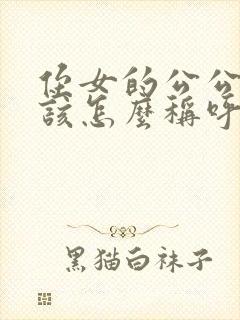 侄女的公公
該怎麼稱呼
黑猫白袜子